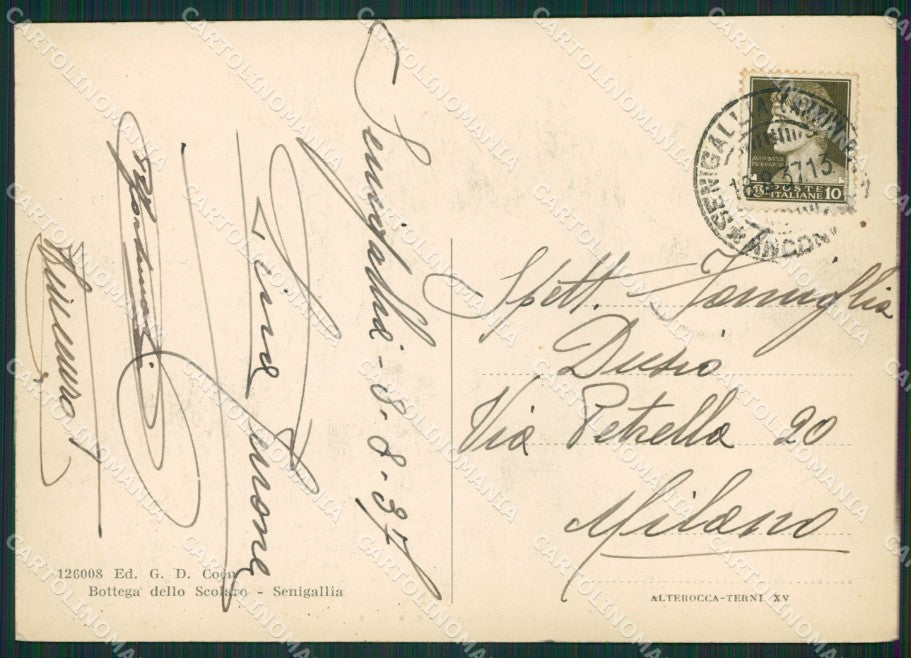 Senigallia - 8-8-37
Spett. Famiglia
Dusio
Via Petrella 20
Milano
SENIGALLIA
ANCONA
18.8.37.13
POSTE
ITALIANE 10
126008 Ed. G. D. Coen
Bottega dello Scolaro - Senigallia
ALTEROCCA-TERNI XV
CARTOLINOMANIA